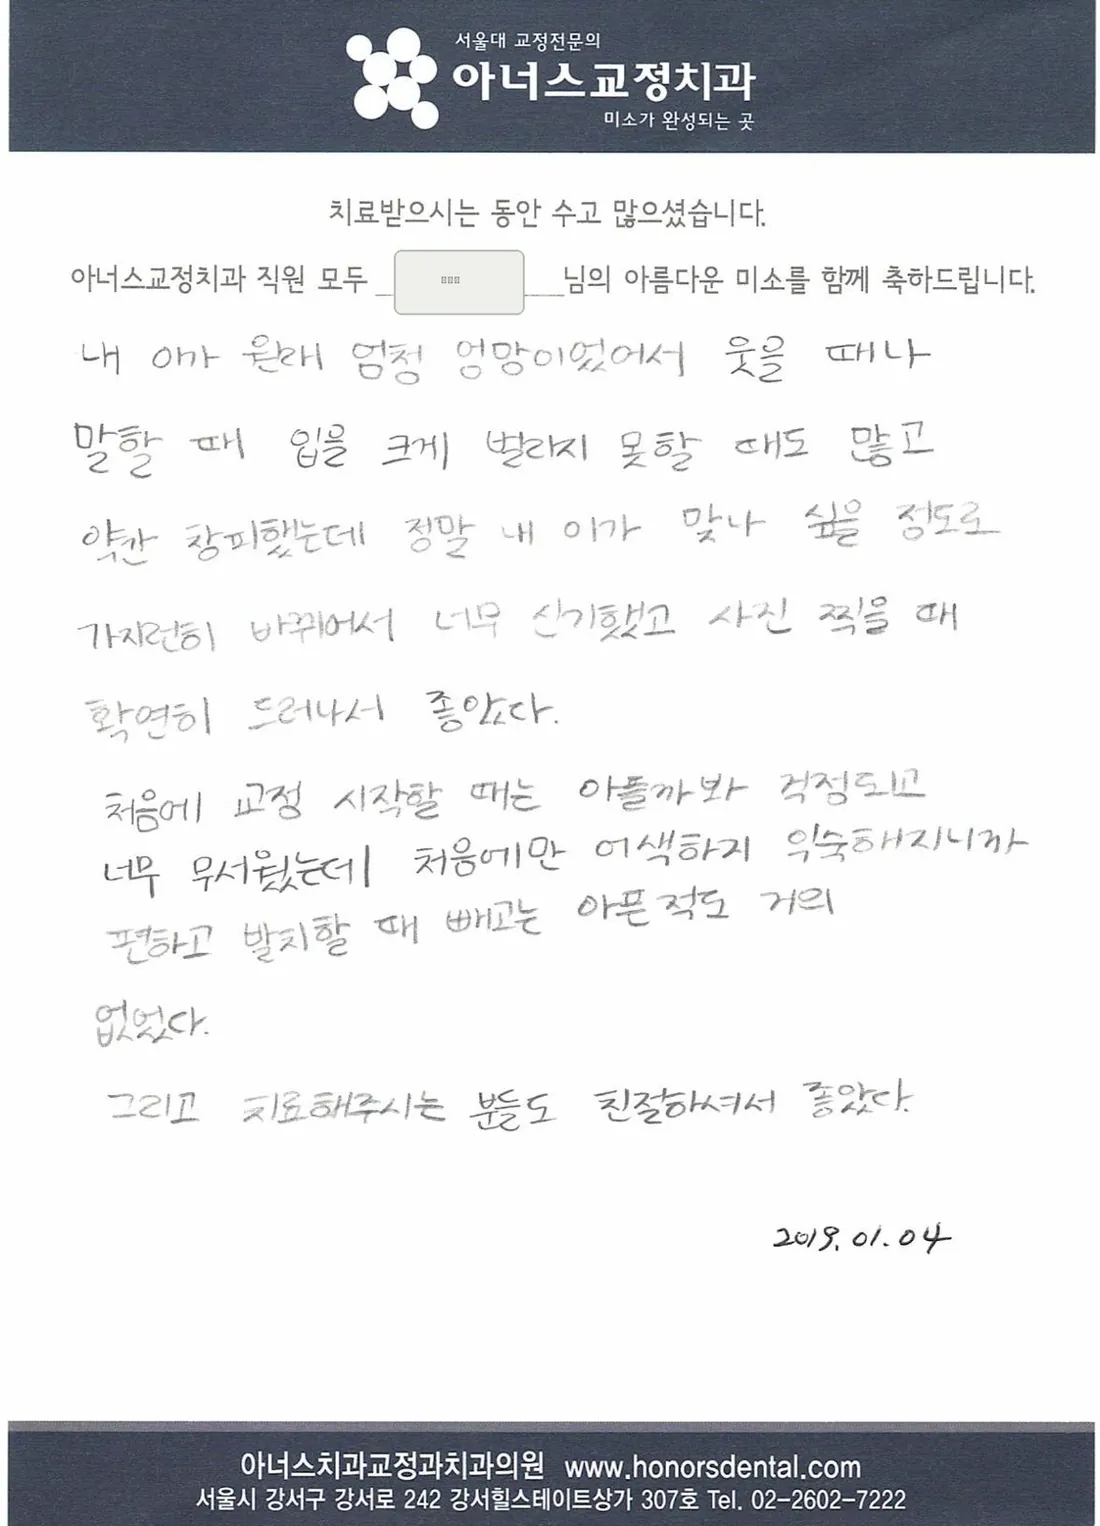 서울대 교정전문의
아너스교정치과
미소가 완성되는 곳
치료받으시는 동안 수고 많으셨습니다.
아너스교정치과 직원 모두 ___ 님의 아름다운 미소를 함께 축하드립니다.
내 이가 원래 엄청 엉망이었어서 웃을 때나
말할 때 입을 크게 벌리지 못할 때도 많고
약간 창피했는데 정말 내 이가 맞나 싶을 정도로
가지런히 바뀌어서 너무 신기했고 사진 찍을 때
확연히 드러나서 좋았다.
처음에 교정 시작할 때는 아플까봐 걱정되고
너무 무서웠는데 처음에만 어색하지 익숙해지니까
편하고 발치할 때 빼고는 아픈적도 거의
없었다.
그리고 치료해주시는 분들도 친절하셔서 좋았다.
2019.01.04
아너스치과교정과치과의원 www.honorsdental.com
서울시 강서구 강서로 242 강서힐스테이트상가 307호 Tel. 02-2602-7222